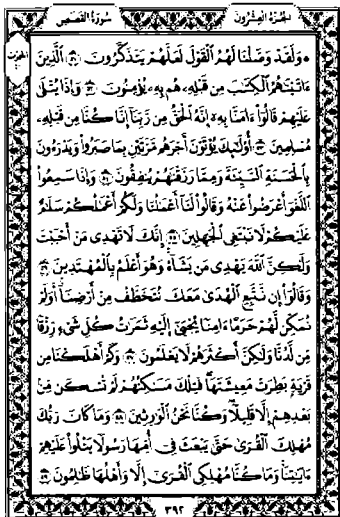 الجزء العشرون
سورة القصص
۞ وَلَقَدْ وَصَّلْنَا لَهُمُ ٱلْقَوْلَ لَعَلَّهُمْ يَتَذَكَّرُونَ ٥١ ٱلَّذِينَ
ءَاتَيْنَٰهُمُ ٱلْكِتَٰبَ مِن قَبْلِهِۦ هُم بِهِۦ يُؤْمِنُونَ ٥٢ وَإِذَا يُتْلَىٰ
عَلَيْهِمْ قَالُوٓا۟ ءَامَنَّا بِهِۦٓ إِنَّهُ ٱلْحَقُّ مِن رَّبِّنَآ إِنَّا كُنَّا مِن قَبْلِهِۦ
مُسْلِمِينَ ٥٣ أُو۟لَٰٓئِكَ يُؤْتَوْنَ أَجْرَهُم مَّرَّتَيْنِ بِمَا صَبَرُوا۟ وَيَدْرَءُونَ
بِٱلْحَسَنَةِ ٱلسَّيِّئَةَ وَمِمَّا رَزَقْنَٰهُمْ يُنفِقُونَ ٥٤ وَإِذَا سَمِعُوا۟
ٱللَّغْوَ أَعْرَضُوا۟ عَنْهُ وَقَالُوا۟ لَنَآ أَعْمَٰلُنَا وَلَكُمْ أَعْمَٰلُكُمْ سَلَٰمٌ
عَلَيْكُمْ لَا نَبْتَغِى ٱلْجَٰهِلِينَ ٥٥ إِنَّكَ لَا تَهْدِى مَنْ أَحْبَبْتَ
وَلَٰكِنَّ ٱللَّهَ يَهْدِى مَن يَشَآءُ وَهُوَ أَعْلَمُ بِٱلْمُهْتَدِينَ ٥٦
وَقَالُوٓا۟ إِن نَّتَّبِعِ ٱلْهُدَىٰ مَعَكَ نُتَخَطَّفْ مِنْ أَرْضِنَآ أَوَلَمْ
نُمَكِّن لَّهُمْ حَرَمًا ءَامِنًا يُجْبَىٰٓ إِلَيْهِ ثَمَرَٰتُ كُلِّ شَىْءٍ رِّزْقًا
مِّن لَّدُنَّا وَلَٰكِنَّ أَكْثَرَهُمْ لَا يَعْلَمُونَ ٥٧ وَكَمْ أَهْلَكْنَا مِن
قَرْيَةٍۭ بَطِرَتْ مَعِيشَتَهَا فَتِلْكَ مَسَٰكِنُهُمْ لَمْ تُسْكَن مِّنۢ
بَعْدِهِمْ إِلَّا قَلِيلًا وَكُنَّا نَحْنُ ٱلْوَٰرِثِينَ ٥٨ وَمَا كَانَ رَبُّكَ
مُهْلِكَ ٱلْقُرَىٰ حَتَّىٰ يَبْعَثَ فِىٓ أُمِّهَا رَسُولًا يَتْلُوا۟ عَلَيْهِمْ
ءَايَٰتِنَا وَمَا كُنَّا مُهْلِكِى ٱلْقُرَىٰٓ إِلَّا وَأَهْلُهَا ظَٰلِمُونَ ٥٩
٣٩٢